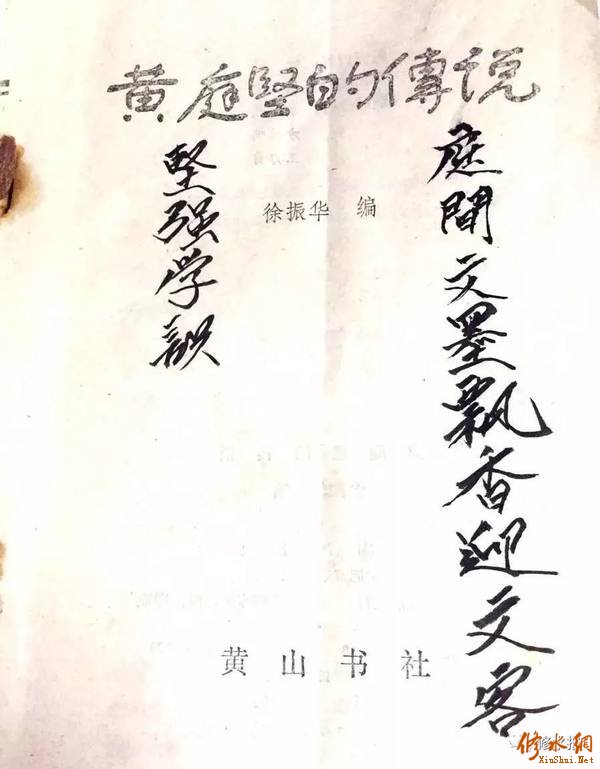 黄庭堅的傳说
徐振华 编
庭間文墨飘香迎文客
堅强学
黄山书社
修水網
XiuShui.Net